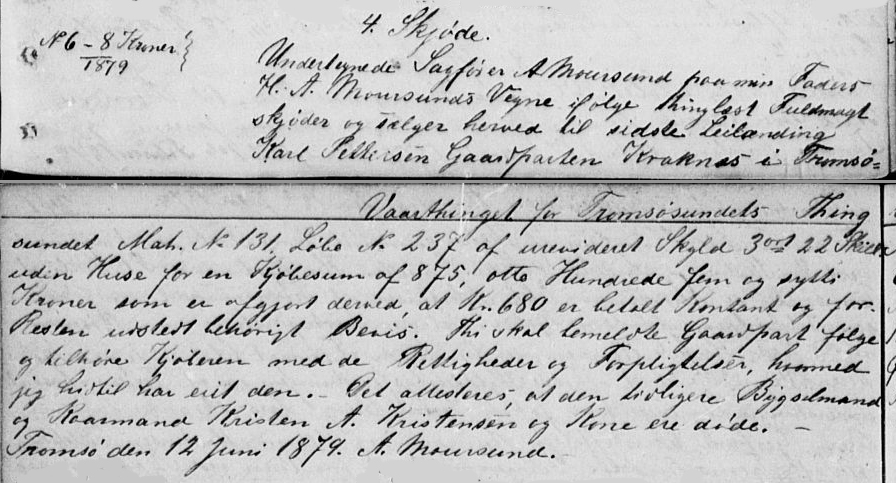 4. Skjøde.
N 6 - 8 Kroner
1879
Undertegnede Sagfører A Moursund paa min Faders
H. A. Moursunds Vegne ifølge thinglæst Fuldmagt
skjøder og sælger herved til sidste Leilænding
Karl Pettersen Gaardparten Kraknæs i Tromsø=
Vaarthinget for Tromsøsundets Thing
sundet Mat. N. 131, Løbe N. 237 af urevideret Skyld 3 ort 22 Skill.
uden Huse for en Kjøbesum af 875, otte Hundrede fem og sytti
Kroner som er afgjort derved, at Kr. 680 er betalt Kontant og for
Resten udstedt behørigt Bevis. Thi skal bemeldte Gaardpart følge
og tilhøre Kjøberen med de Rettigheder og Forpligtelser, hvormed
jeg hidtil har eiet den. - Det attesteres, at den tidligere Bygselmand
og Kaarmand Kristen A. Kristensen og Kone ere døde. -
Tromsø den 12 Juni 1879. A. Moursund.